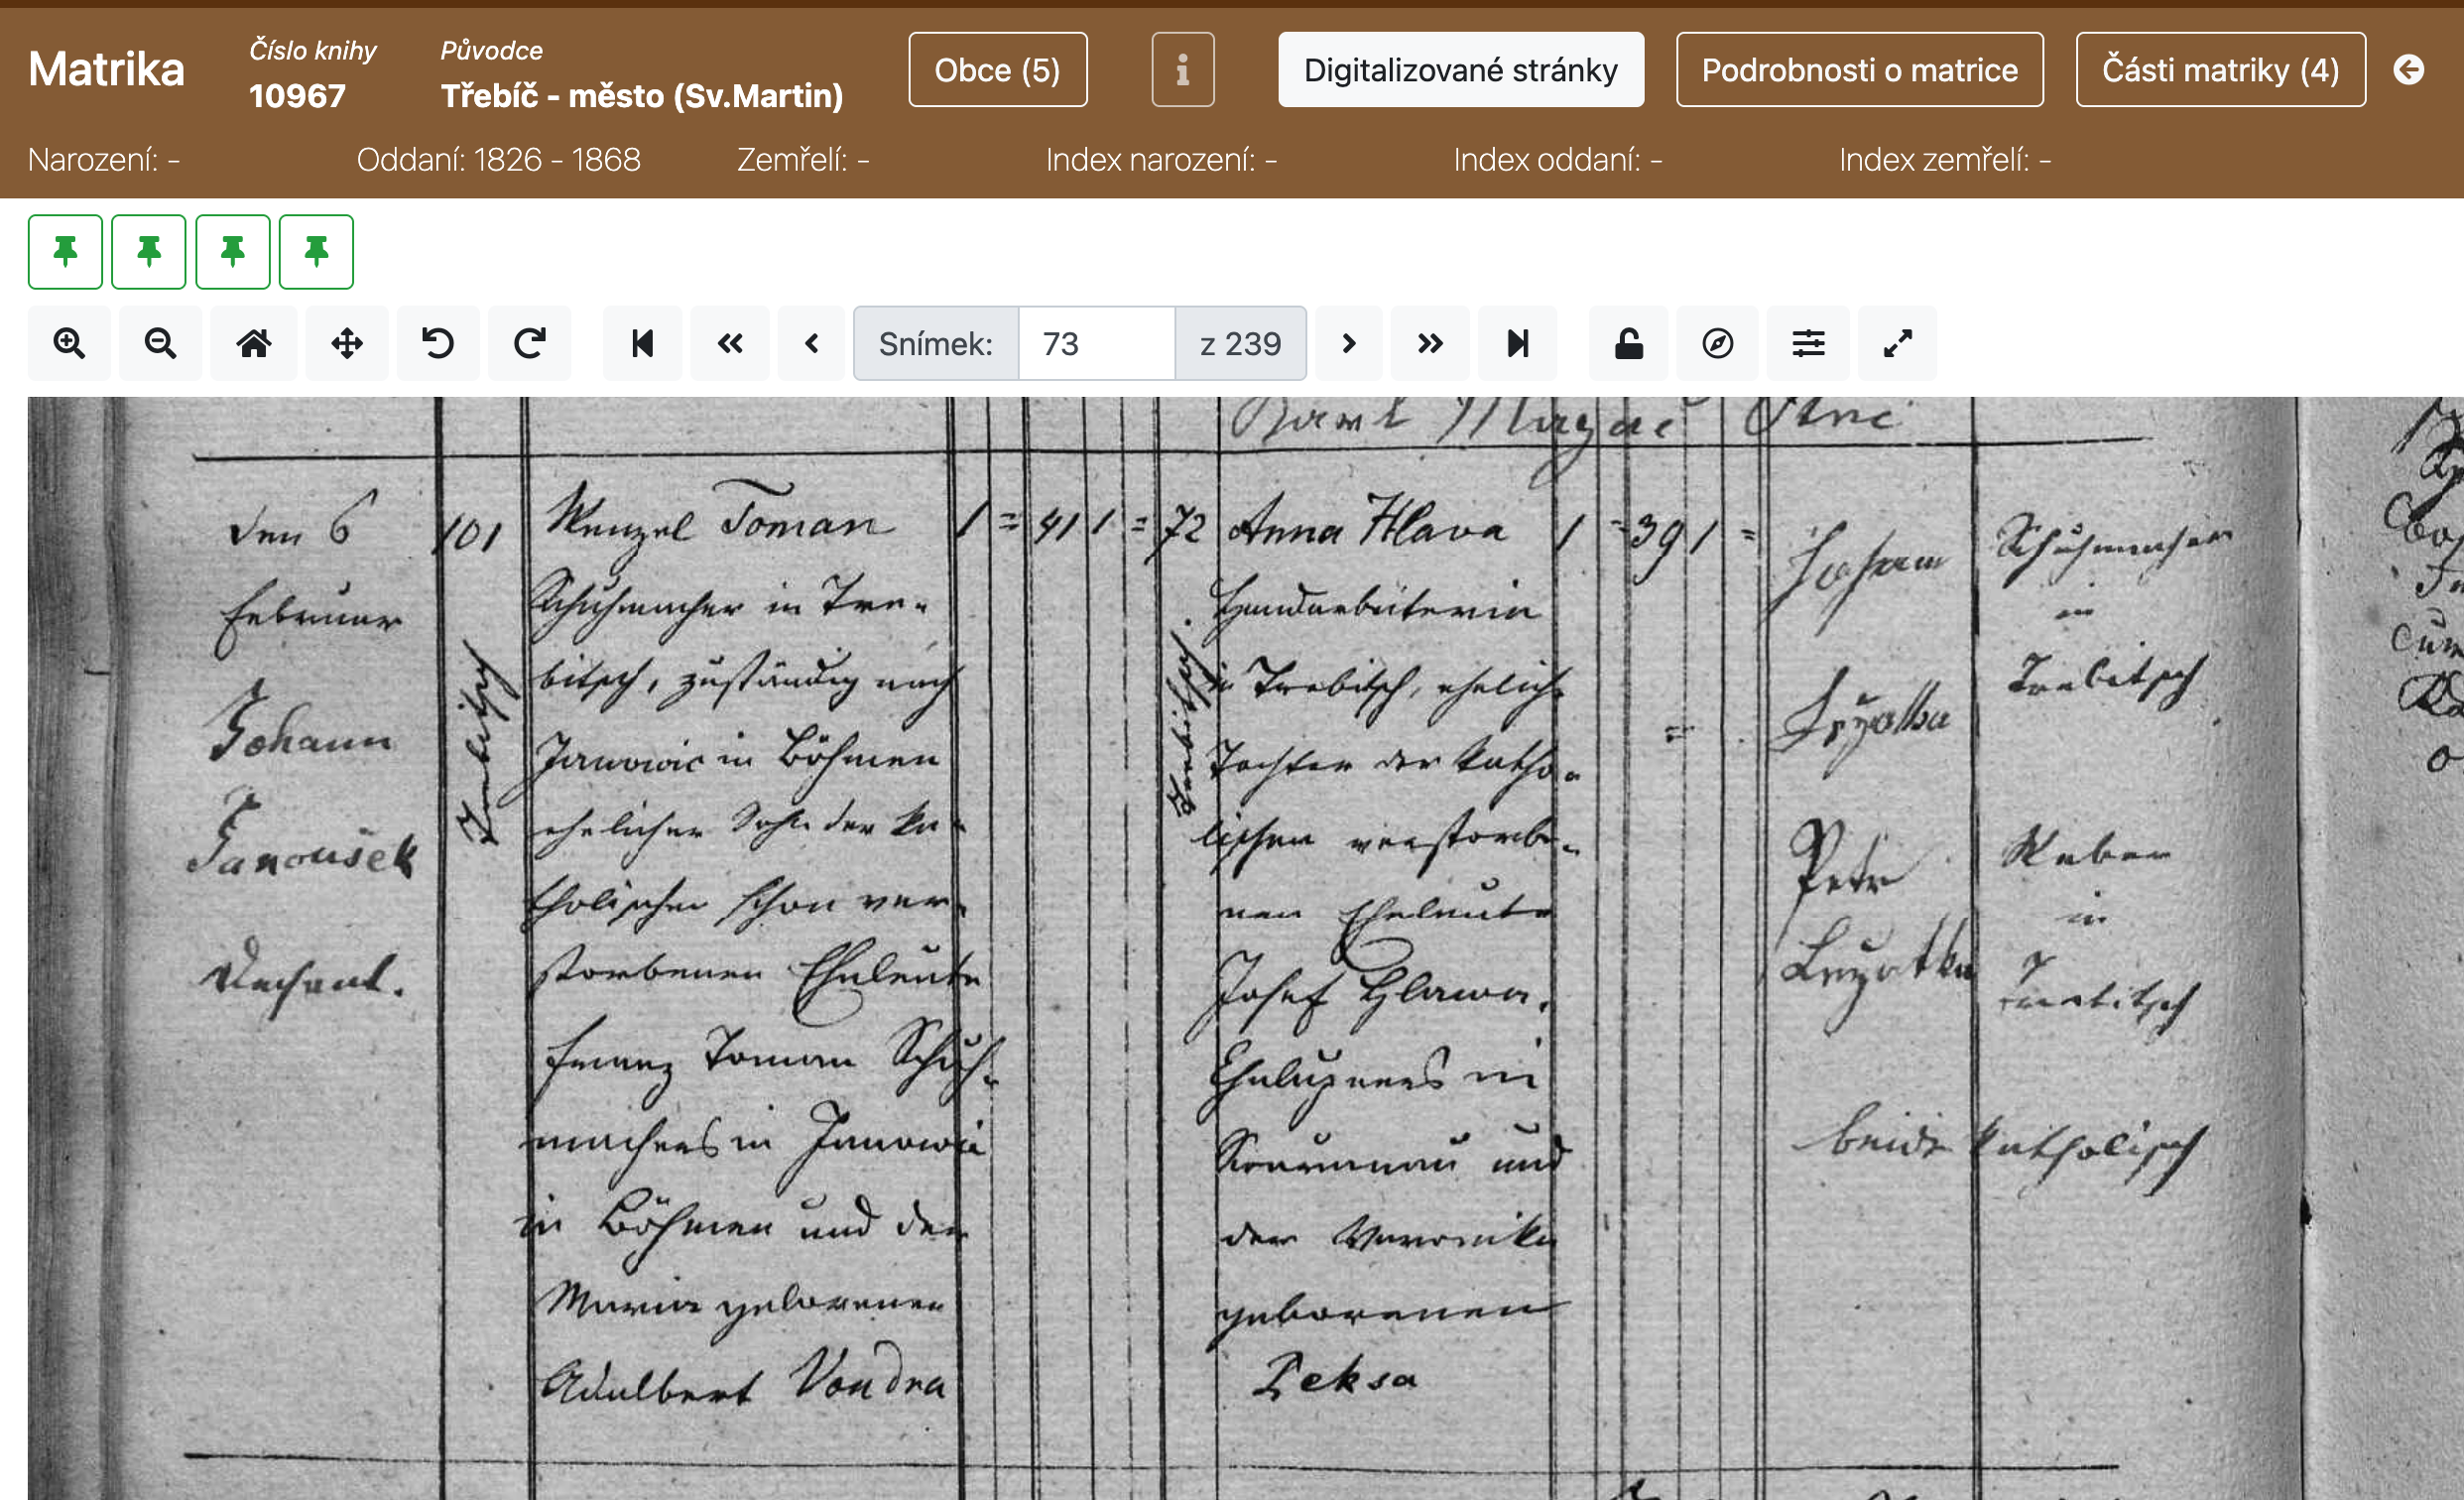 Matrika
Číslo knihy
10967
Původce
Třebíč - město (Sv.Martin)
Obce (5)
i
Digitalizované stránky
Podrobnosti o matrice
Části matriky (4)
Narození: -
Oddaní: 1826 - 1868
Zemřelí: -
Index narození: -
Index oddaní: -
Index zemřelí: -
Snímek:
73
z 239
den 6
Februar
Johann
Janoušek
Dechant.
101
Trebitsch
Wenzel Toman
Schuhmacher in Tre-
bitsch, zuständig nach
Janowic in Böhmen
ehelicher Sohn der ka-
tholischen schon ver-
storbenen Eheleute
Franz Toman Schuh-
machers in Janowic
in Böhmen und der
Maria geborenen
Adalbert Vondra
1 = 41 1 =
72
Trebitsch.
Anna Hlava
Handarbeiterin
in Trebitsch, eheliche
Tochter der katho-
lischen verstorbe-
nen Eheleute
Josef Hlawa,
Chalupners in
und
der Veronika
geborenen
Peksa
1 = 39 1 =
=
Johann
Schuhmacher
in
Trebitsch
Petr
Weber
in
Trebitsch
beide katholisch